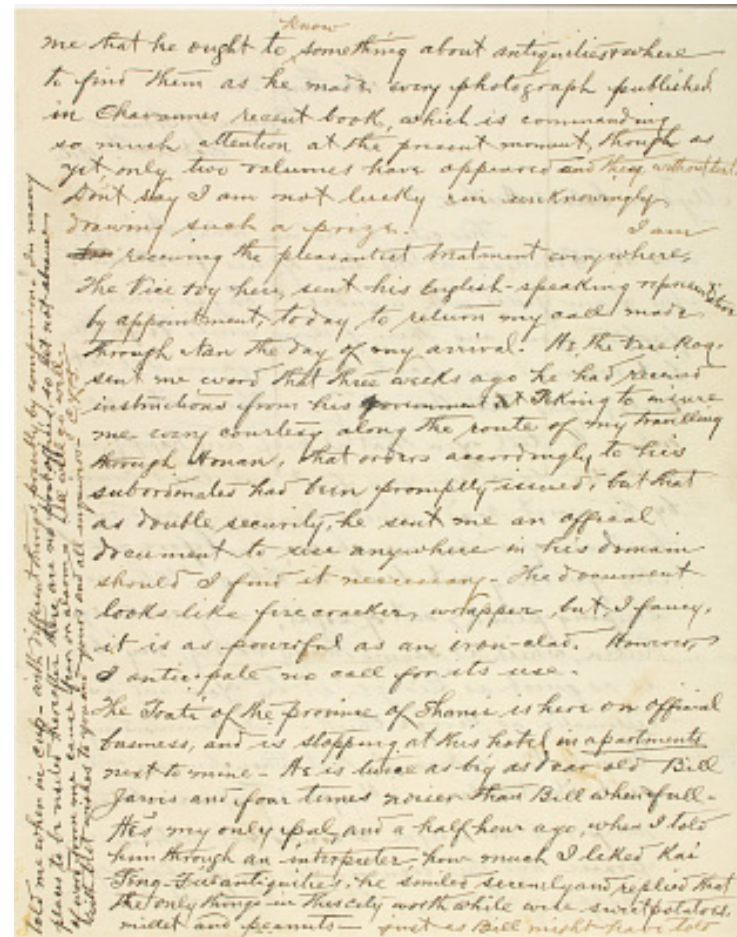 know
me that he ought to something about antiquities & where
to find them as he made every photograph published
in Chavannes recent book, which is commanding
so much attention at the present moment, though as
yet only two volumes have appeared and they without text.
Don't say I am not lucky in unknowingly
drawing such a prize. I am
receiving the pleasantest treatment everywhere,
The Vice roy here, sent his English-speaking representative
by appointment, today to return my call made
through Nan the day of my arrival. He, the Vice Roy.
sent me word that three weeks ago he had received
instructions from his government at Peking to insure
me every courtesy along the route of my travelling
through Honan, that orders accordingly to his
subordinates had been promptly issued, but that
as double security, he sent me an offical
document to use anywhere in his domain
should I find it necessary - The document
looks like firecracker, wrapper, but I fancy,
it is as powerful as an iron-clad. However,
I anticipate no call for its use.
The Taoti of the province of Shansi is here on official
business, and is stopping at this hotel in apartments
next to mine - He is twice as big as dear old Bill
Jarvis and four times noiser than Bill when full -
He's my only pal, and a half hour ago, when I told
him through an interpreter how much I liked Kai
Fing-Fu antiquities, he smiled serenely and replied that
the only things in this city worth while were sweet potatoes,
millet and peanuts - just as Bill might have told
told me when in cup - with different things, possibly by comparison - In many
places to be visited thereafter there are no post offices, so let not absence
of word from me cause fear or alarm. All will go well.
With best wishes to you and yours and all inquiries -